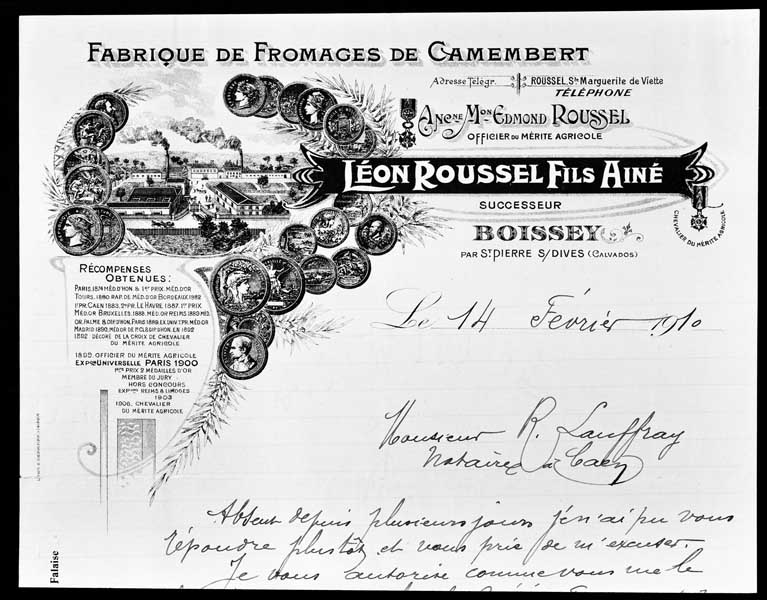 FABRIQUE DE FROMAGES DE CAMEMBERT
Adresse Télégr. ROUSSEL, Ste Marguerite de Viette
TÉLÉPHONE
ANCNE MON EDMOND ROUSSEL
OFFICIER DU MÉRITE AGRICOLE
LÉON ROUSSEL FILS AINÉ
SUCCESSEUR
BOISSEY
PAR ST PIERRE S/DIVES (CALVADOS)
CHEVALIER DU MÉRITE AGRICOLE
RÉCOMPENSES
OBTENUES:
PARIS, 1874 MÉD. D'HON & 1ER PRIX MÉD. D'OR
TOURS, 1880 RAP. DE MÉD. D'OR BORDEAUX 1882
1ER PR. CAEN 1883, 2E PR. LE HAVRE, 1887. 1ER PRIX
MÉD. OR BRUXELLES, 1888. MÉD. OR REIMS 1889 MÉD.
OR, PALME & DIP. D'HON, PARIS 1889, EX. UNIV. 1ER PR. MÉD. OR
MADRID 1890, MÉD. OR DE 1ÈRE CL. & DIP. D'HON. EN 1892
1892 DÉCORÉ DE LA CROIX DE CHEVALIER
DU MÉRITE AGRICOLE
1899, OFFICIER DU MÉRITE AGRICOLE
EXPON UNIVERSELLE PARIS 1900
MEMBRE DU JURY
HORS CONCOURS
REIMS & LIMOGES
1903
1906, CHEVALIER
DU MÉRITE AGRICOLE
Le 14 Février 1910
Monsieur R. Lauffray
Notaire à Caen
Absent depuis plusieurs jours je n'ai pu vous
répondre plustôt et vous prie de m'excuser.
Je vous autorise comme vous me le
Falaise